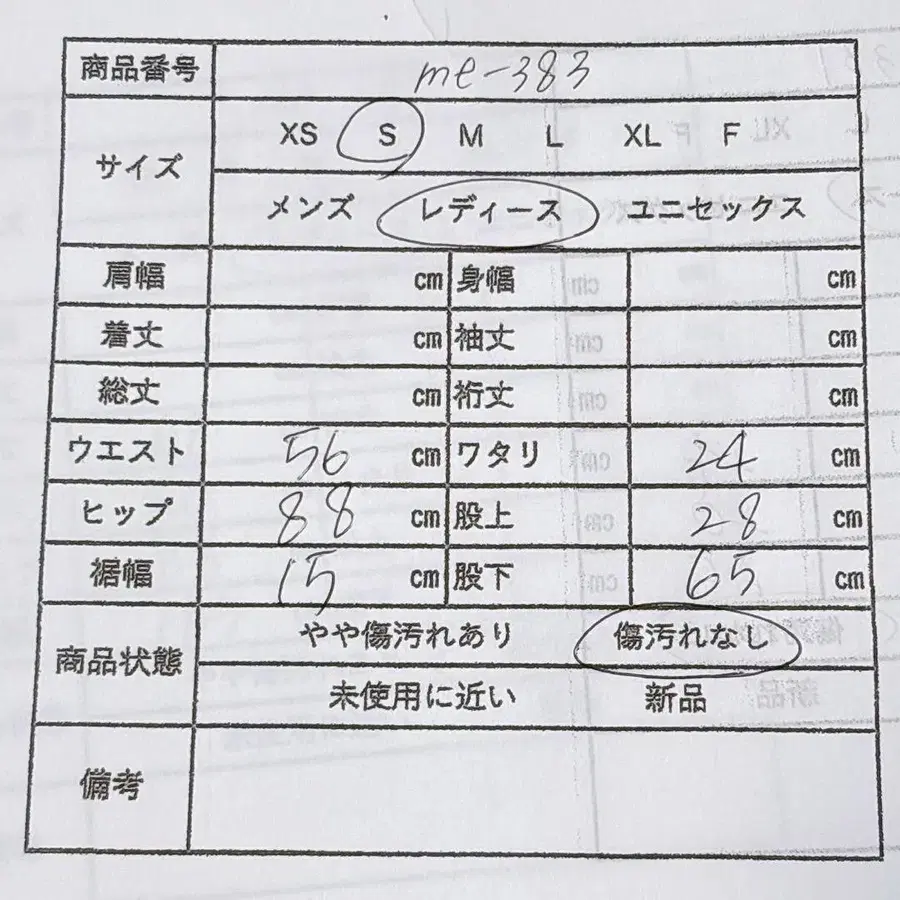 商品番号 me-383
サイズ XS S M L XL F
メンズ レディース ユニセックス
肩幅 cm 身幅 cm
着丈 cm 袖丈 cm
総丈 cm 裄丈 cm
ウエスト 56 cm ワタリ 24 cm
ヒップ 88 cm 股上 28 cm
裾幅 15 cm 股下 65 cm
商品状態 やや傷汚れあり 傷汚れなし
未使用に近い 新品
備考